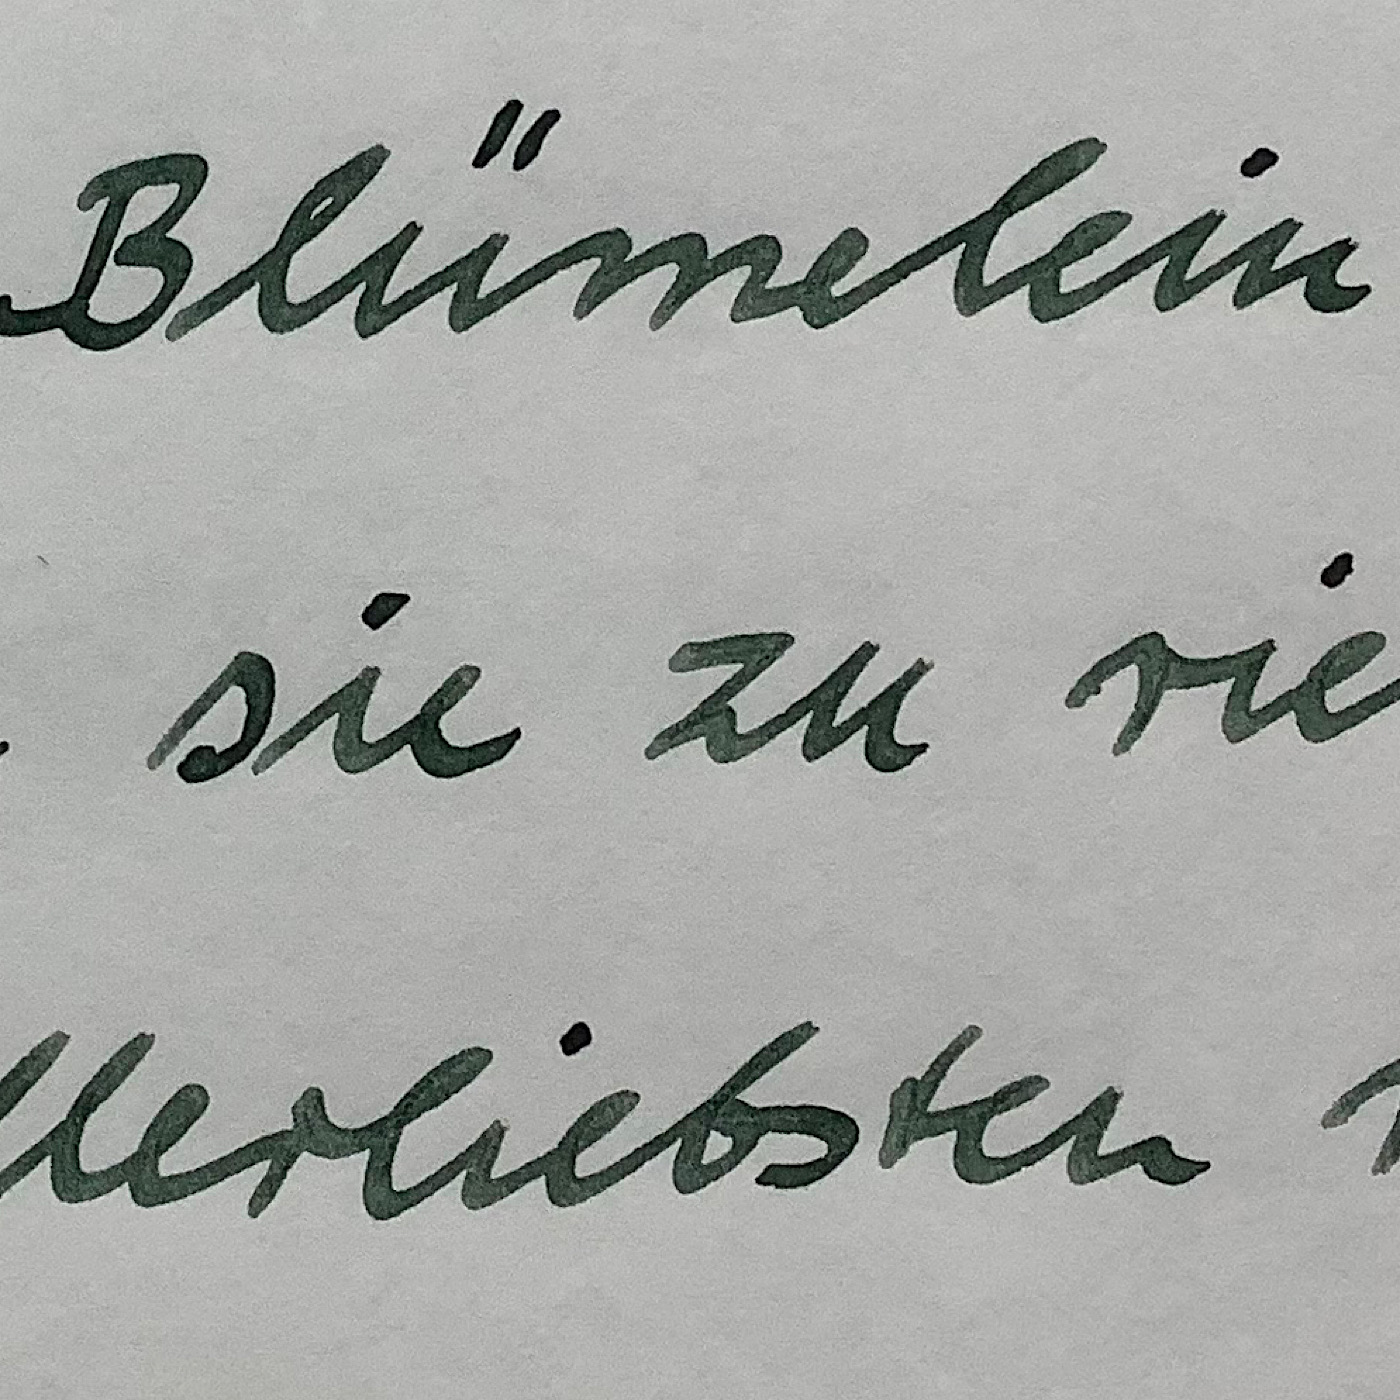 Blümelein
sie zu rie
llerliebsten